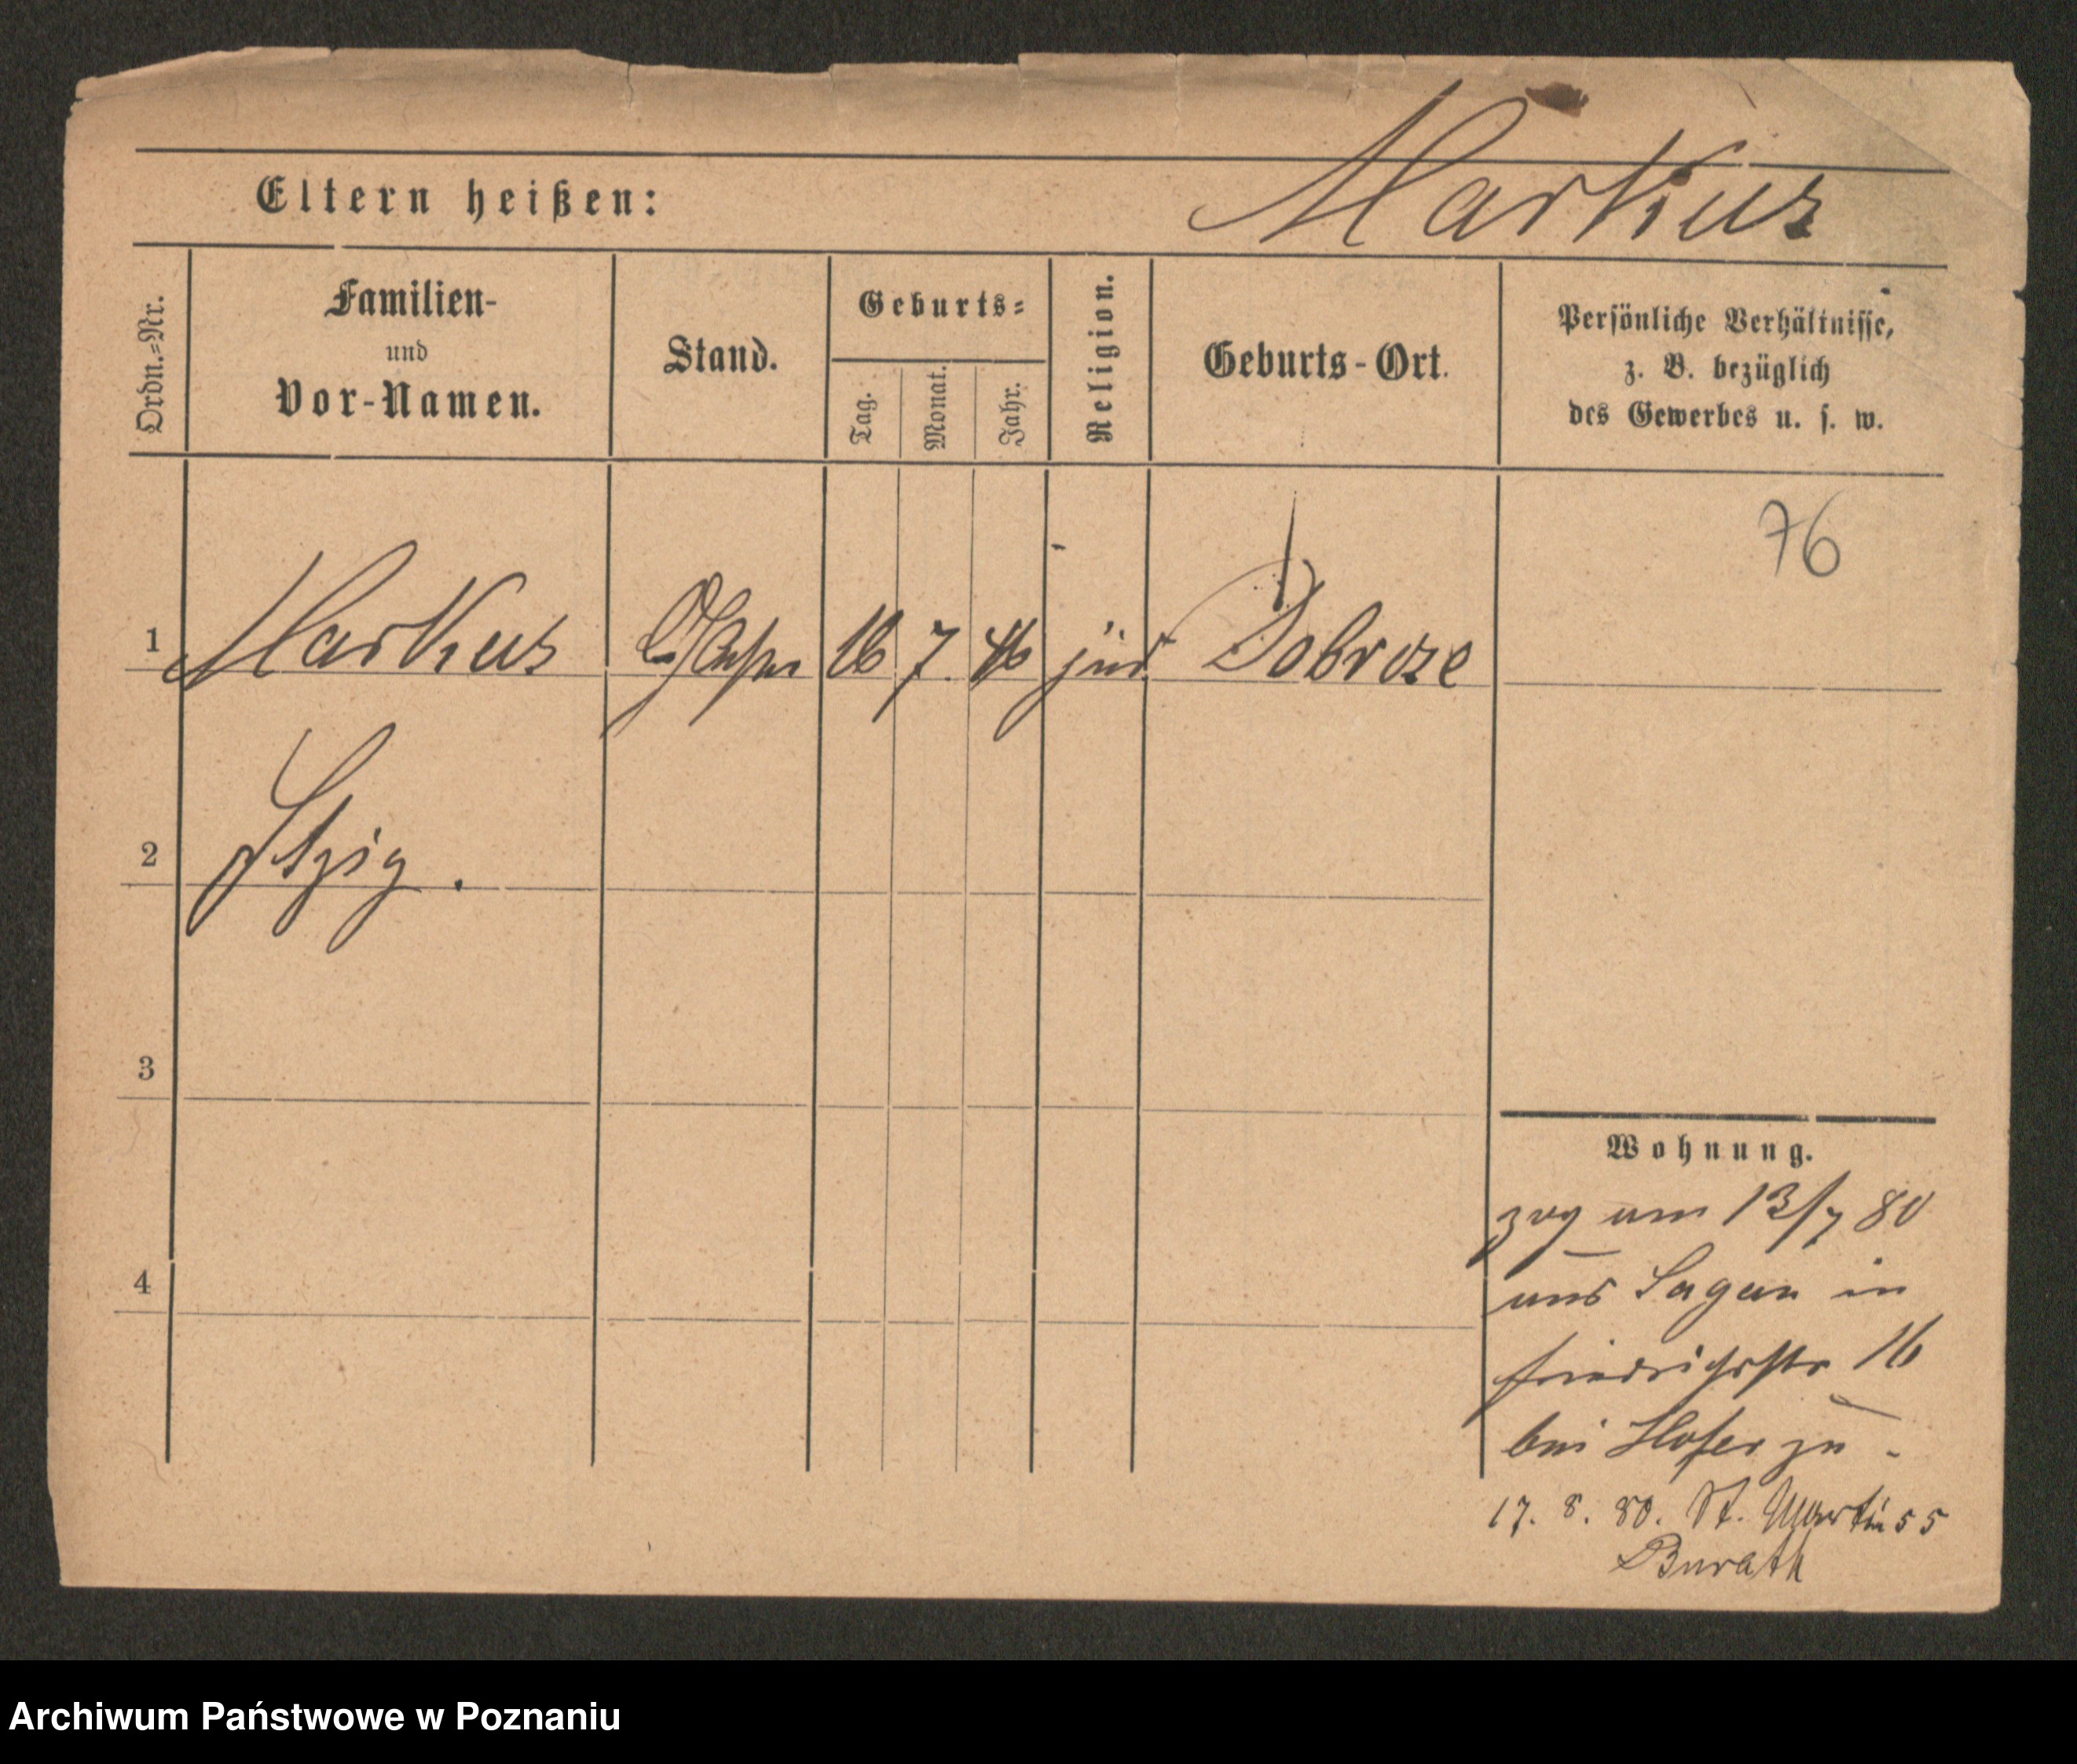 Markus
Eltern heißen:
Ordn.=Nr.
Familien-
und
Vor-Namen.
Stand.
Geburts=
Tag.
Monat.
Jahr.
Religion.
Geburts-Ort.
Persönliche Verhältnisse,
z. B. bezüglich
des Gewerbes u. s. w.
76
1 Markus 16 7. 46 jüd. Dobrcze
2 Itzig.
3
4
Wohnung.
zog am 13/7 80
aus Sagan in
Friedrichstr 16
bei Hofer zu -
17. 8. 80. St. Martin 55
Burath
Archiwum Państwowe w Poznaniu